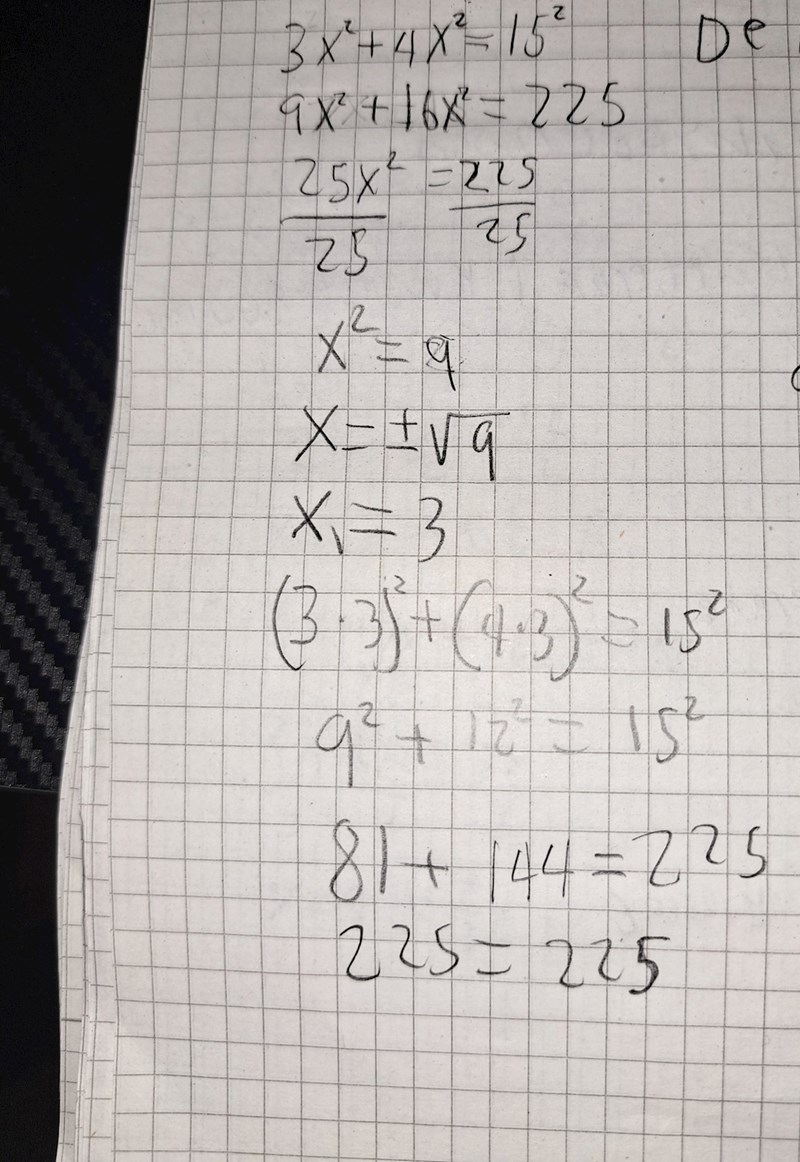 3x²+4x²=15²
De
9x²+16x²=225
25x²/25 =225/25
x²=9
x=±√9
x₁=3
(3·3)²+(4·3)²=15²
9²+12²=15²
81+144=225
225=225